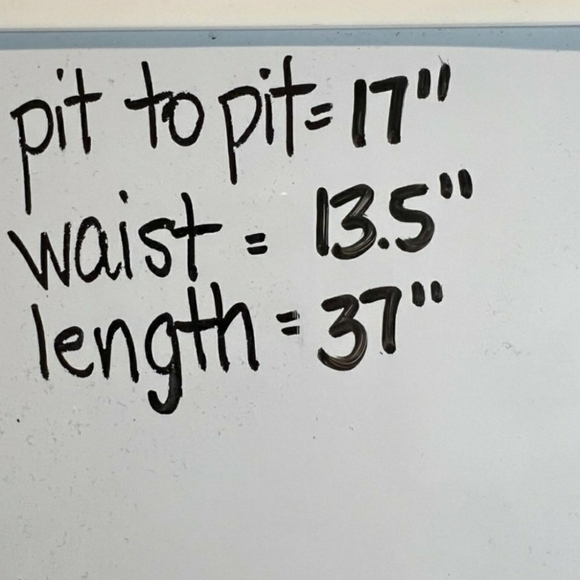 pit to pit= 17"
waist = 13.5"
length = 37"